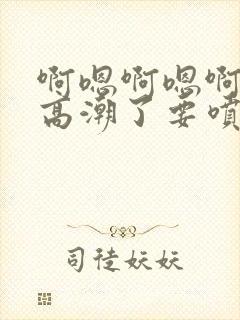 啊嗯啊嗯啊
高潮了要喷
司徒妖妖